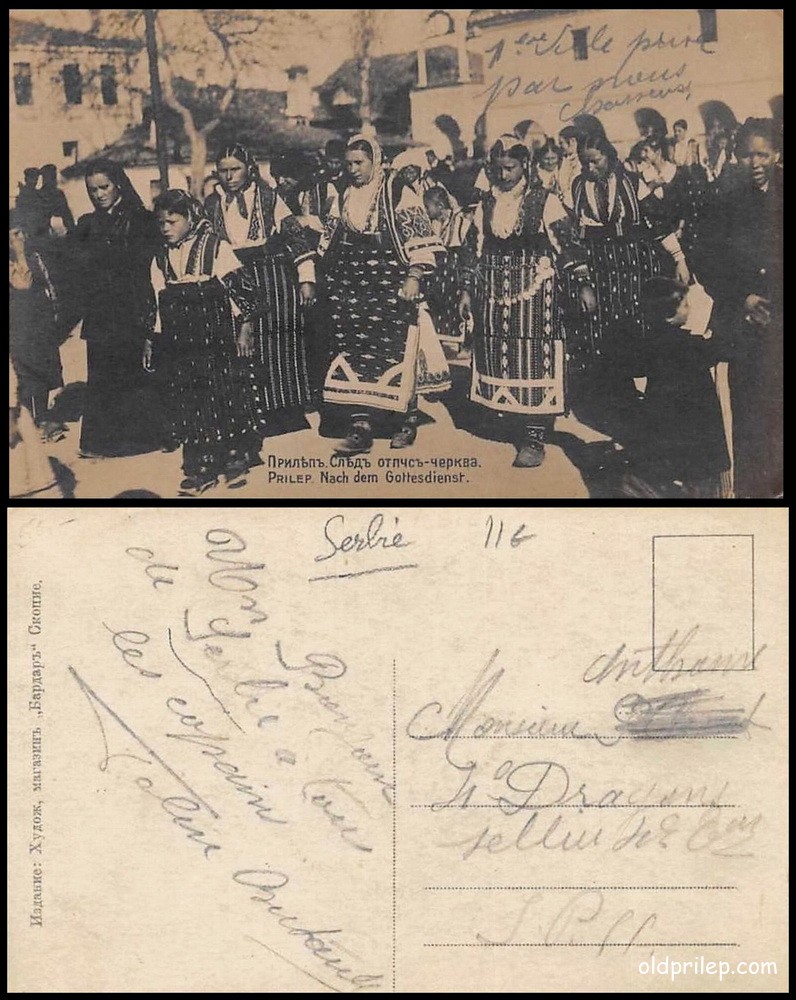 1ère Ville prise
par nous
Прилѣпъ. Слѣдъ отпчсъ-черква.
Prilep. Nach dem Gottesdienst.
Serbie 116
Издание: Худож, магазинъ „Вардаръ“ Скопие.
Un Bonjour
de Serbie a tous
les copains
Monsieur
4e Dragons
sellier
oldprilep.com